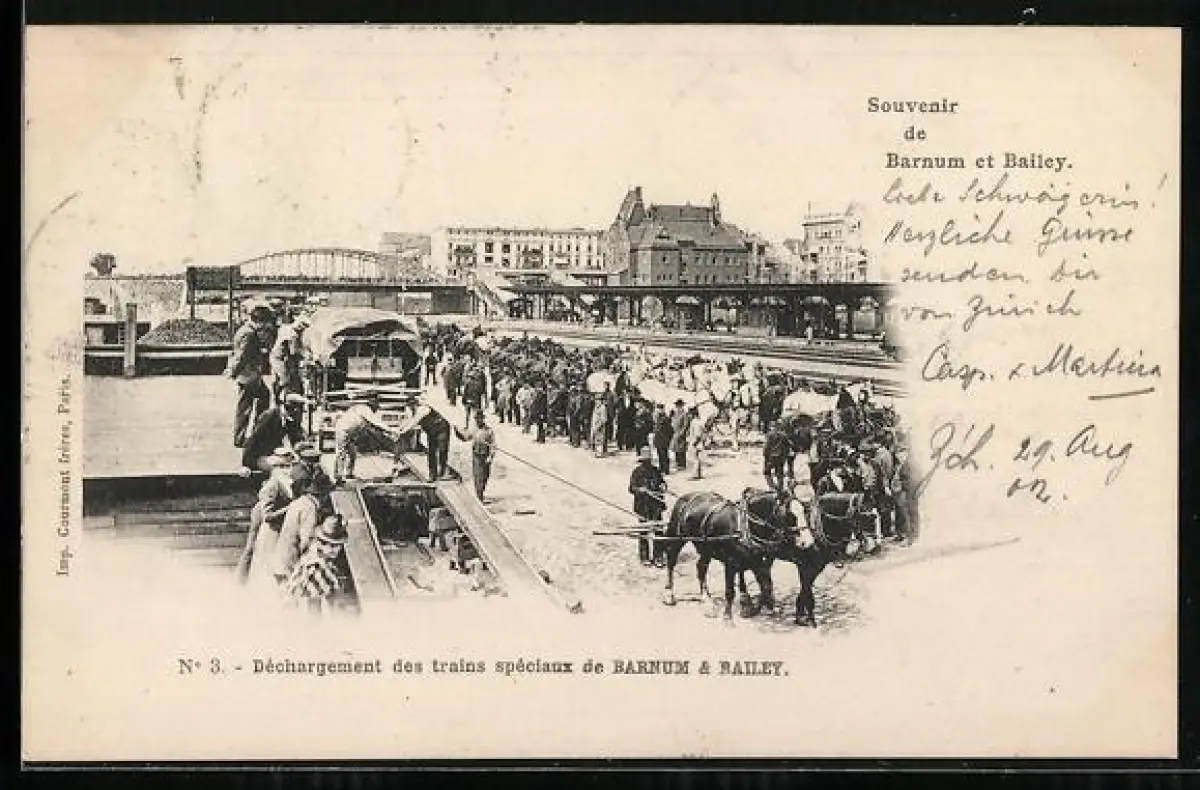 Souvenir
de
Barnum et Bailey.
liebe Schwägerin!
Herzliche Grüsse
senden dir
von Zürich
Casp. & Martina
Zch. 29. Aug
02.
Imp. Courmont frères, Paris.
N° 3. - Déchargement des trains spéciaux de BARNUM & BAILEY.